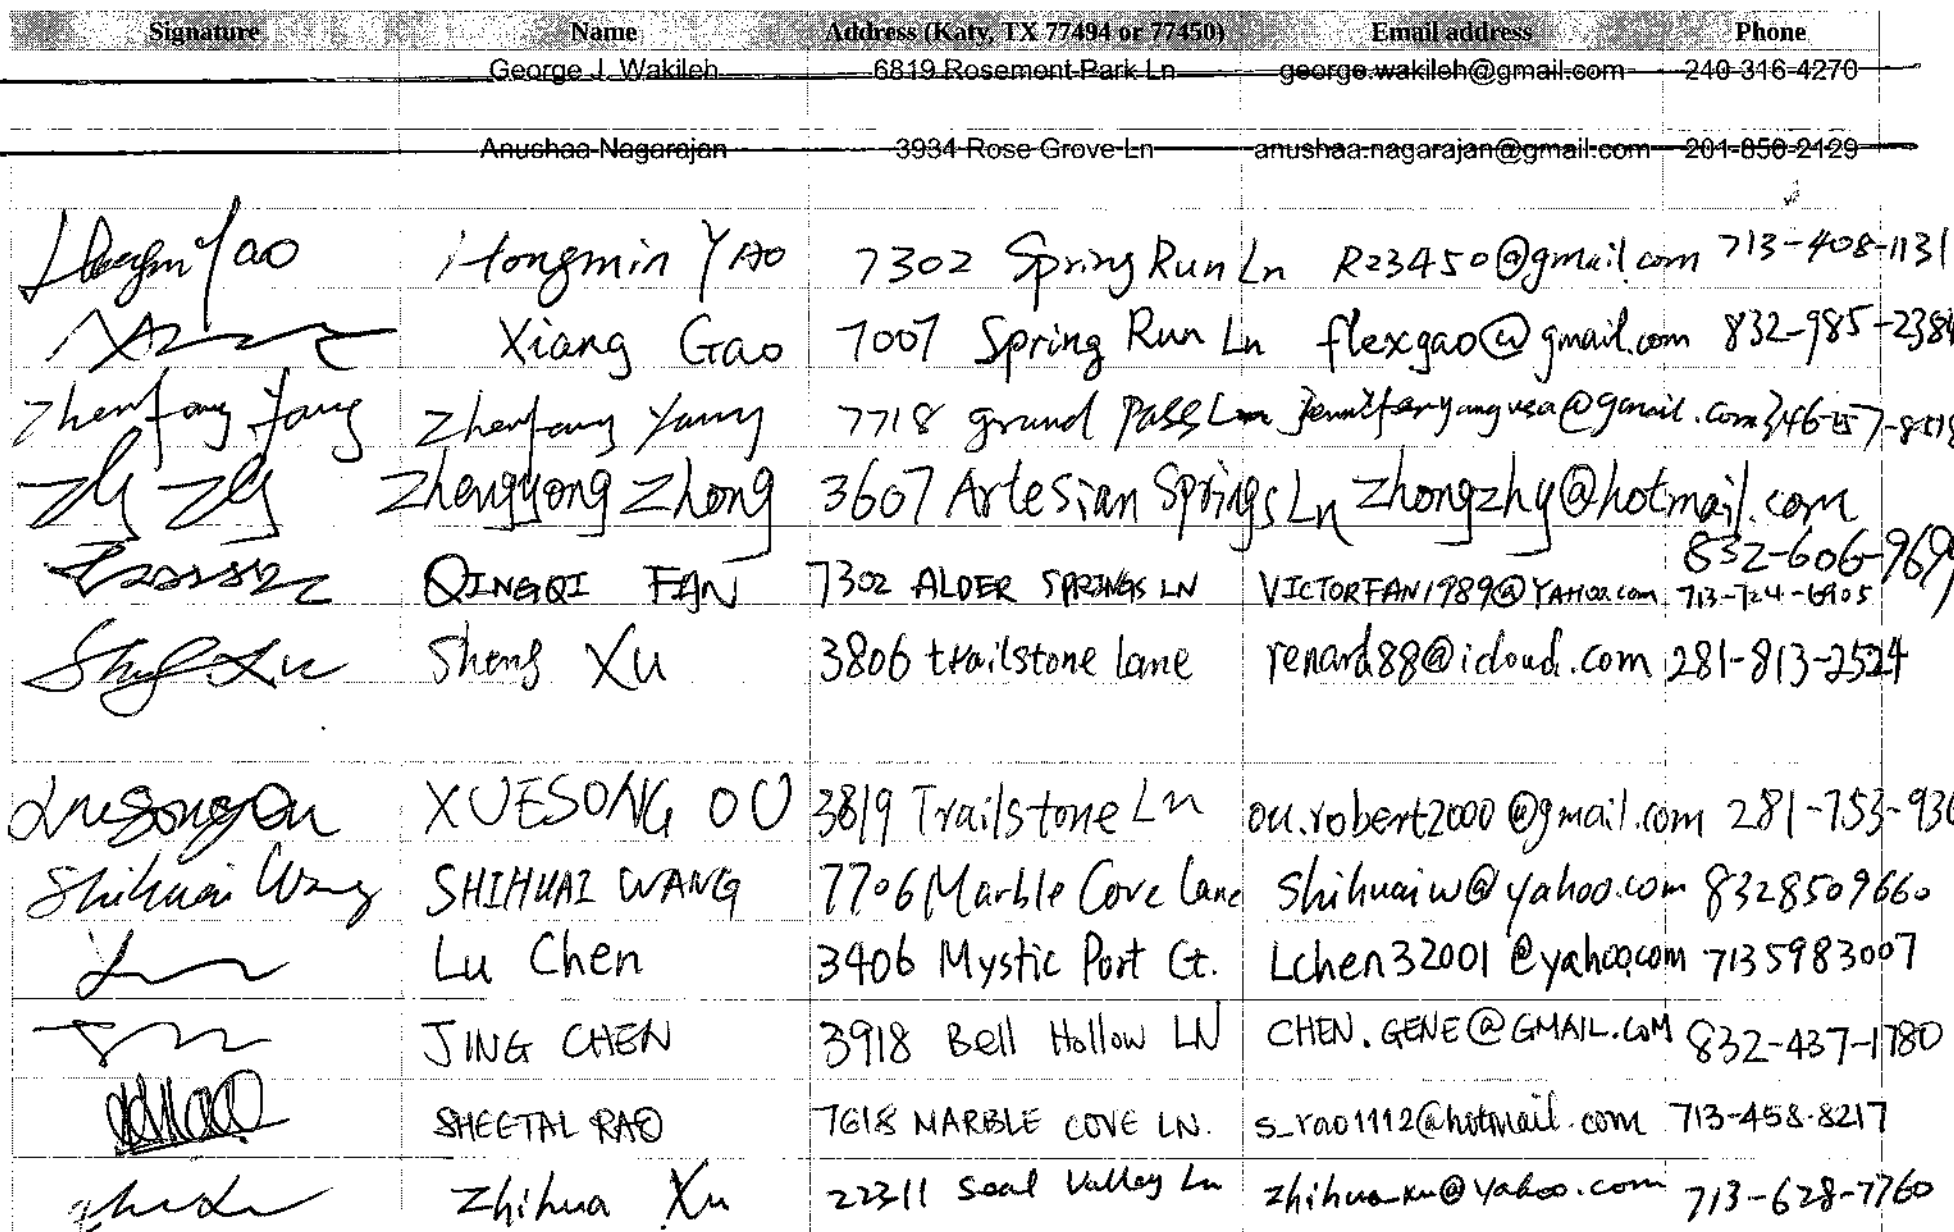 Signature Name Address (Katy, TX 77494 or 77450) Email address Phone
George J. Wakileh 6819 Rosemont Park Ln george.wakileh@gmail.com 240-316-4270
Anushaa Nagarajan 3934 Rose Grove Ln anushaa.nagarajan@gmail.com 201-856-2129
Hongmin YAO 7302 Spring Run Ln R23450@gmail.com 713-408-1131
Xiang Gao 7007 Spring Run Ln flexgao@gmail.com 832-985-2384
Zhenfang Yang Zhenfang Yang 7718 grand Pass Ln jenniferyangusa@gmail.com
Zhengyong Zhong 3607 Artesian Springs Ln zhongzhy@hotmail.com
832-606-969
QINGQI FAN 7302 ALDER SPRINGS LN VICTORFAN1989@YAHOO.com 713-724-6905
Sheng Xu 3806 trailstone lane renard88@icloud.com 281-813-2524
Xuesong Ou XUESONG OU 3819 Trailstone Ln ou.robert2000@gmail.com 281-753-936
Shihuai Wang SHIHUAI WANG 7706 Marble Cove Lane Shihuaiw@yahoo.com 8328509660
Lu Chen 3406 Mystic Port Ct. Lchen32001@yahoo.com 7135983007
JING CHEN 3918 Bell Hollow LN CHEN.GENE@GMAIL.COM 832-437-1780
SHEETAL RAO 7618 MARBLE COVE LN. s_rao1112@hotmail.com 713-458-8217
Zhihua Xu 22311 Seal Valley Ln zhihua_xu@yahoo.com 713-628-7760